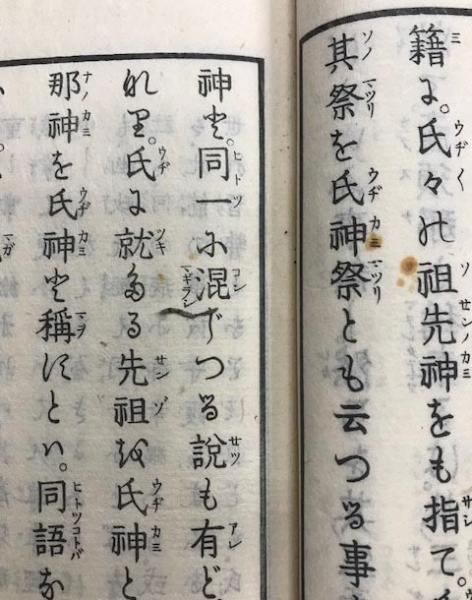 籍に。氏々の祖先神をも指て。
其祭を氏神祭とも云つる事
神と。同一に混じつる説も有ど
れり。氏に就たる先祖を氏神と
那神を氏神と稱すとハ。同語な